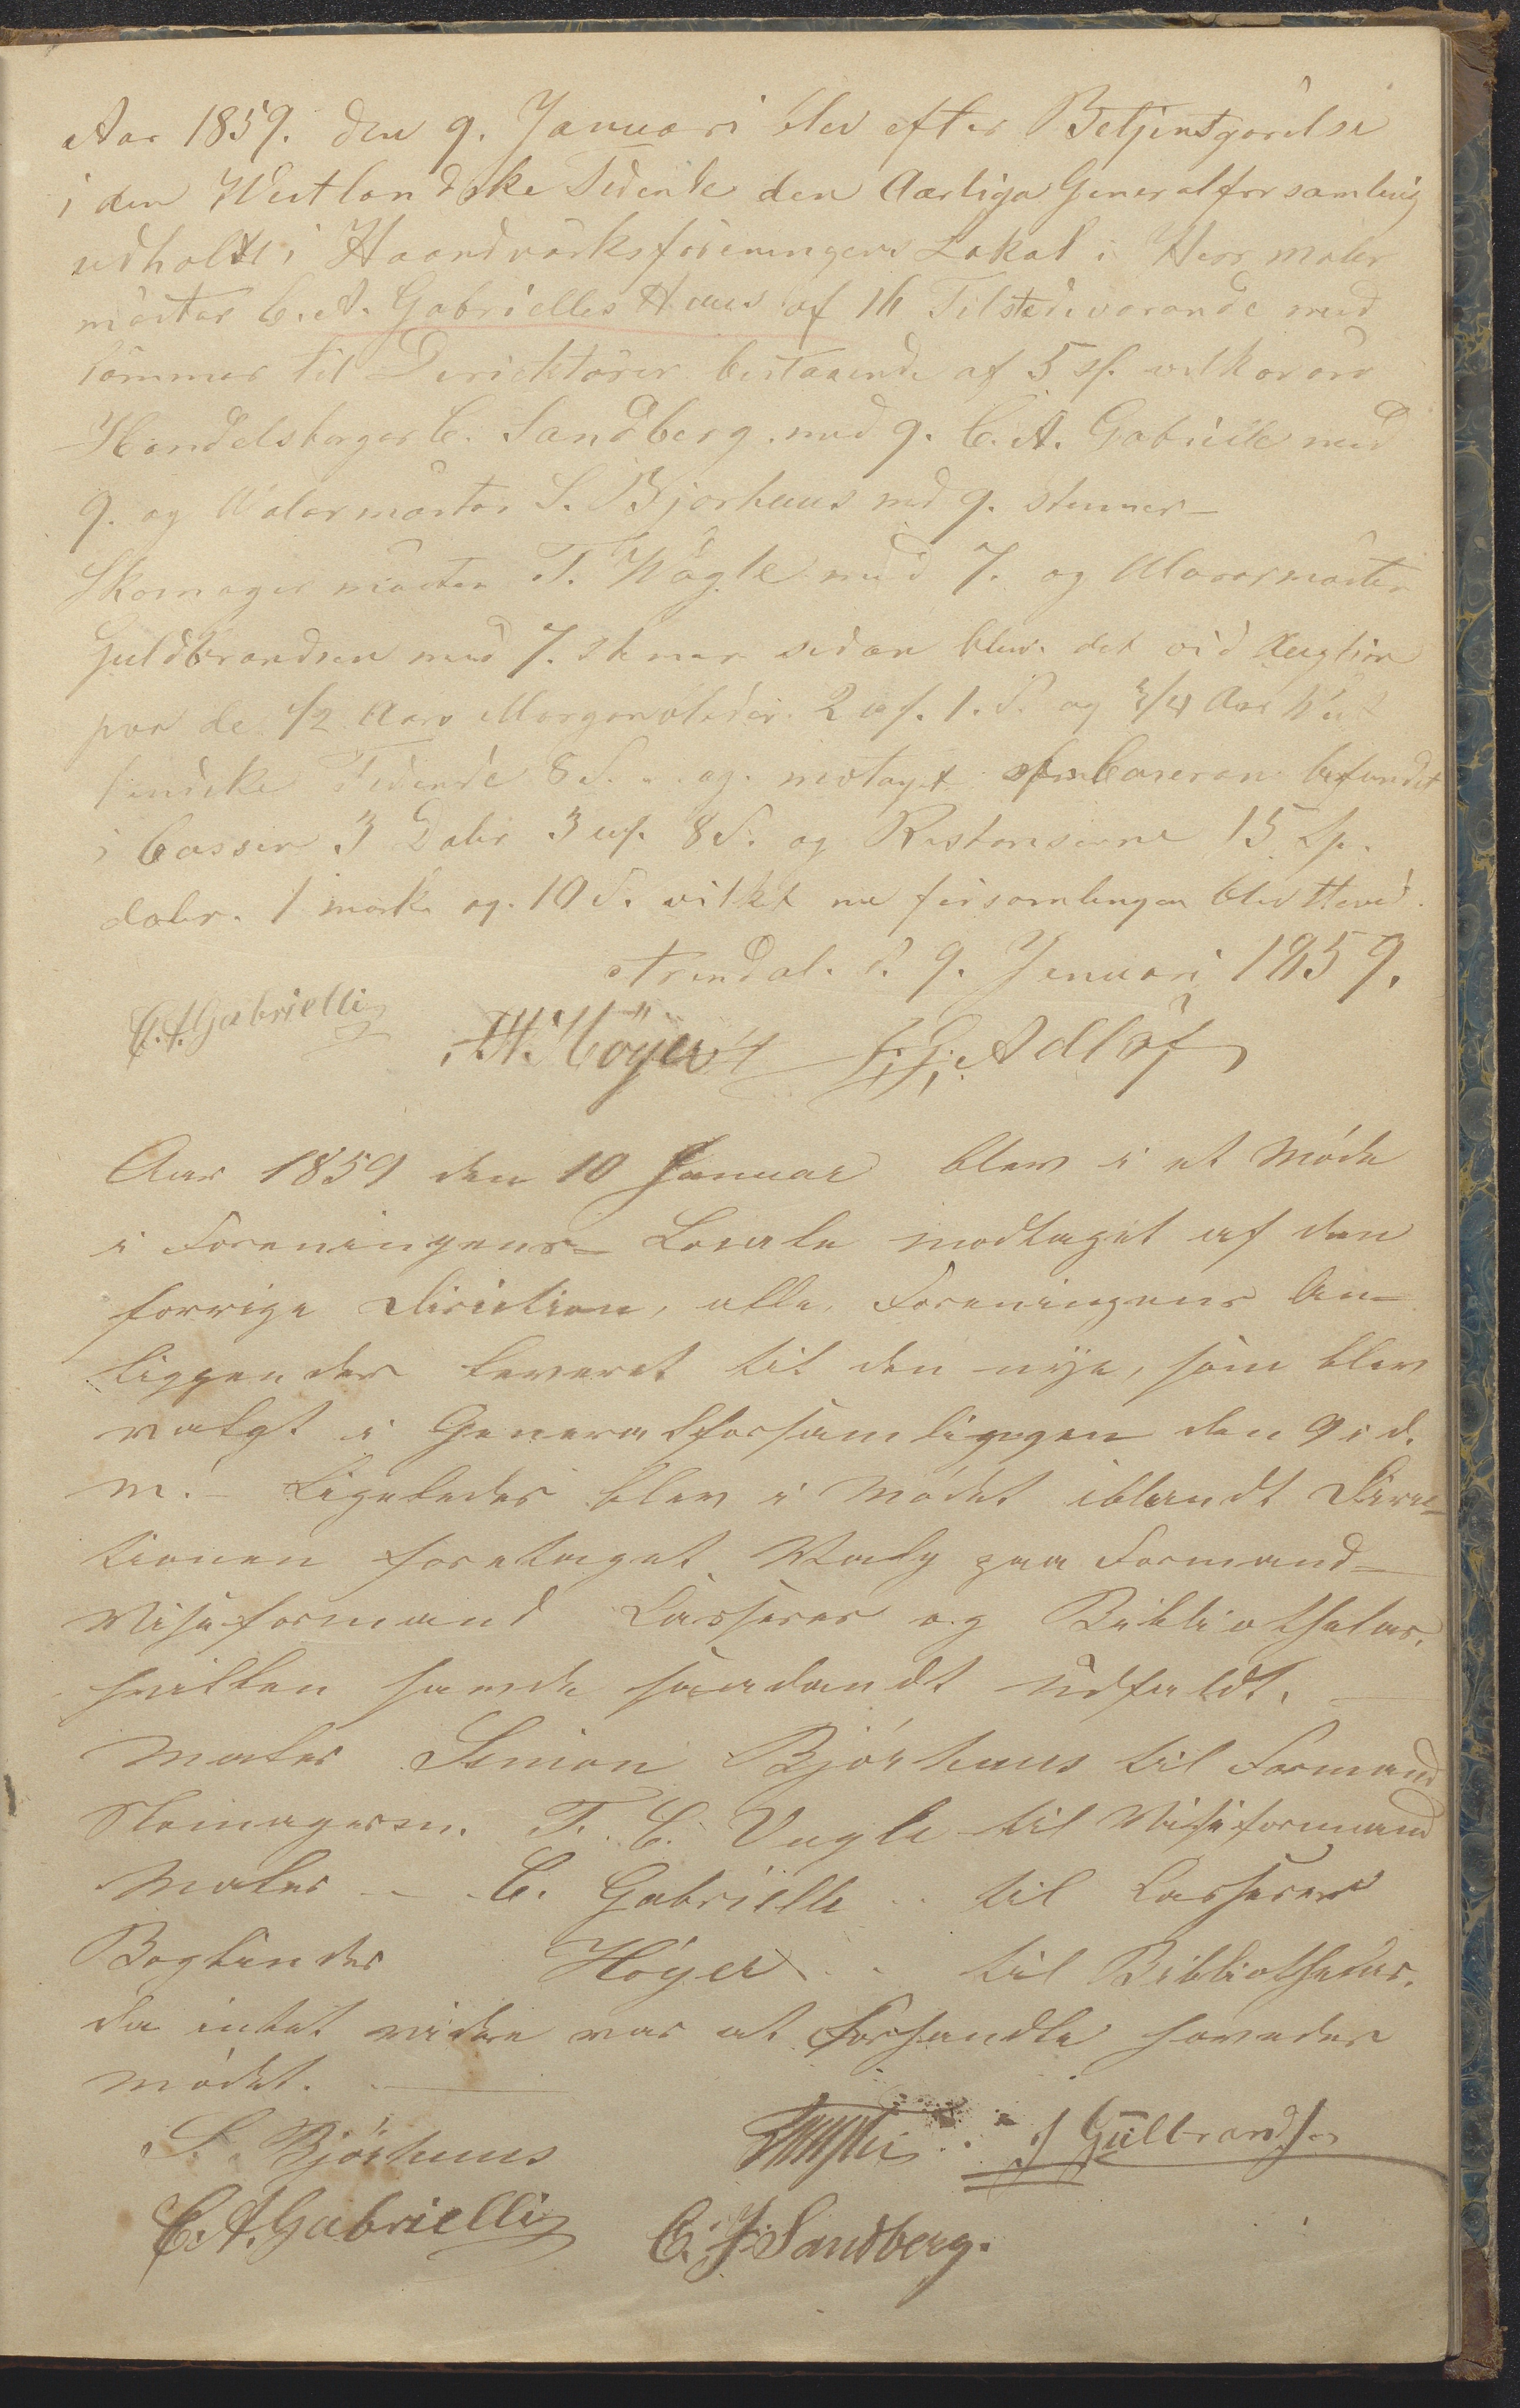 Aar 1859. den 9. Januari blev efter Betjentgörelse
i den Westlandske Tidende den Aarliga Generalforsamling
udholdt i Haandvärksföreningens Lokal i Herr maler
mäster C. A. Gabrielles Haus af 16 Tilstedevarande med
Stömmer til Derichtörer bestaaende af 5 st. vilka var
Handelsborger C. Sandberg. med 9. C. A. Gabrielle med
9. og Malermäster S. Bjorhuus med 9. stemmer -
Skomager mäster T. Wägle med 7. og Murarmäster
Guldbrandsen med 7. stemer sedan blev det vid Augtion
paa de 1/2 Aars Morgenbladet 2 1. S. og 3/4 Aar West
landske Tidende 8 S. og motaget Caseran befundet
i Cassen 3 Daler 3 8 S. og Restansierne 15 Sp.
daler. 1 mark og. 10 S. vilket me försomlingen blev Hevet.
Arendal. d. 9. Januari 1859.
C. A. Gabrielli A. H. Höyer G. Adlöf
Aar 1859 den 10 Januar blev i et Möde
i Foreningens Locale modtaget af den
forrige Direction, alle Foreningens An-
liggender leveret til den nye, som blev
valgt i Generalforsamliggen den 9 i d.
M. - Ligeledes blev i Mödet iblandt Direc-
tionen foretaget Valg paa Formand -
Viseformand Casserer og Bibliothekar,
hvilken havde saadandt Udfaldt. -
Maler Simon Björhuus til Formand
Skomagerm. T. C. Vagle til Viseformand
Maler - C. Gabrielle - til Casserer
Bogbinder Höyer - til Bibliothekar.
da intet videre var at forhandle hevedes
mödet.
S. Björhuus J Gulbrandsen
C. A. Gabrielli C. J. Sandberg.